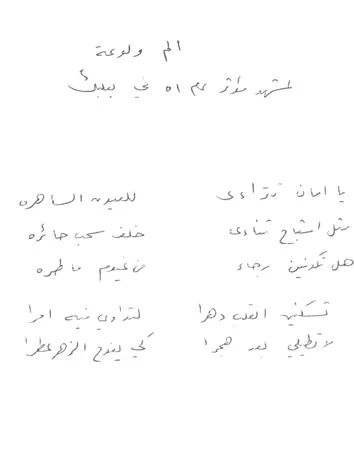 الم ولوعة
لمشهد مؤثر عام ٥١ في بعلبك
يا امان تتراءى للعيون الساهره
مثل اشباح تناءى خلف سحب حائره
هل تكونين رجاء من غيوم ماطره
تسكنين القلب دهرا لتداوي فيه امرا
لا تطيلي بعد هجرا كي يفوح الزهر عطرا